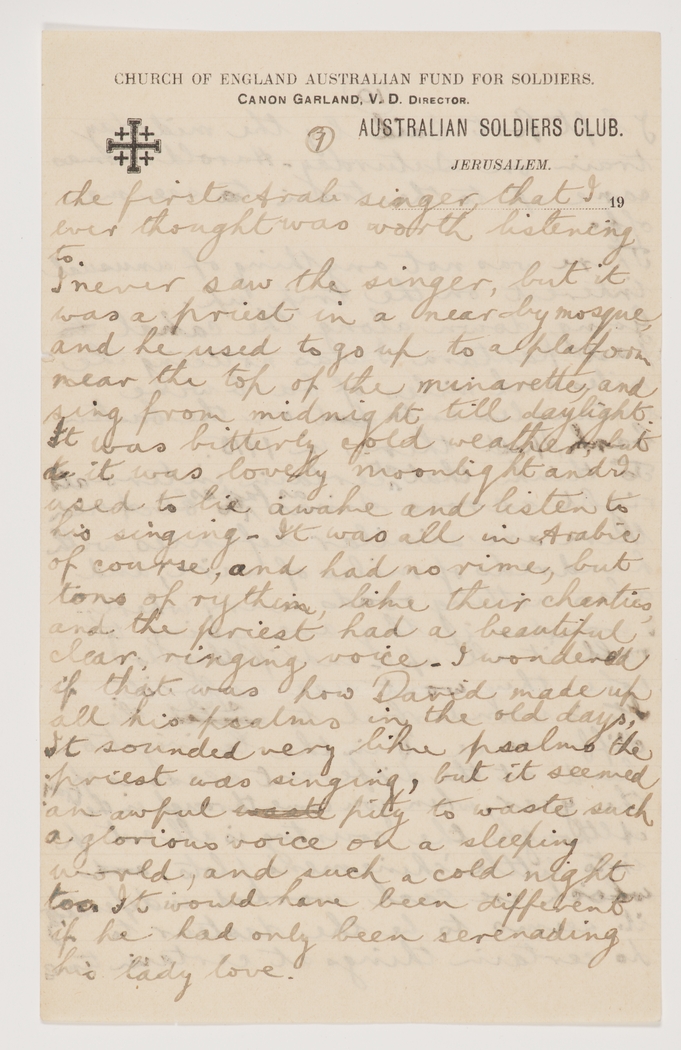 CHURCH OF ENGLAND AUSTRALIAN FUND FOR SOLDIERS.
CANON GARLAND, V. D. DIRECTOR.
AUSTRALIAN SOLDIERS CLUB.
JERUSALEM.
19
the first Arab singer, that I
ever thought was worth listening
to.
I never saw the singer, but it
was a priest in a near-by mosque,
and he used to go up to a platform
near the top of the minarette, and
sing from midnight till daylight.
It was bitterly cold weather but
it was lovely moonlight and I
used to lie awake and listen to
his singing - It was all in Arabic
of course, and had no rime, but
tons of rythim, like their chanties,
and the priest had a beautiful
clear, ringing voice - I wondered
if that was how David made up
all his psalms in the old days,
It sounded very like psalms the
priest was singing, but it seemed
an awful waste pity to waste such
a glorious voice on a sleeping
world, and such a cold night
too. It would have been different
if he had only been serenading
his lady love.